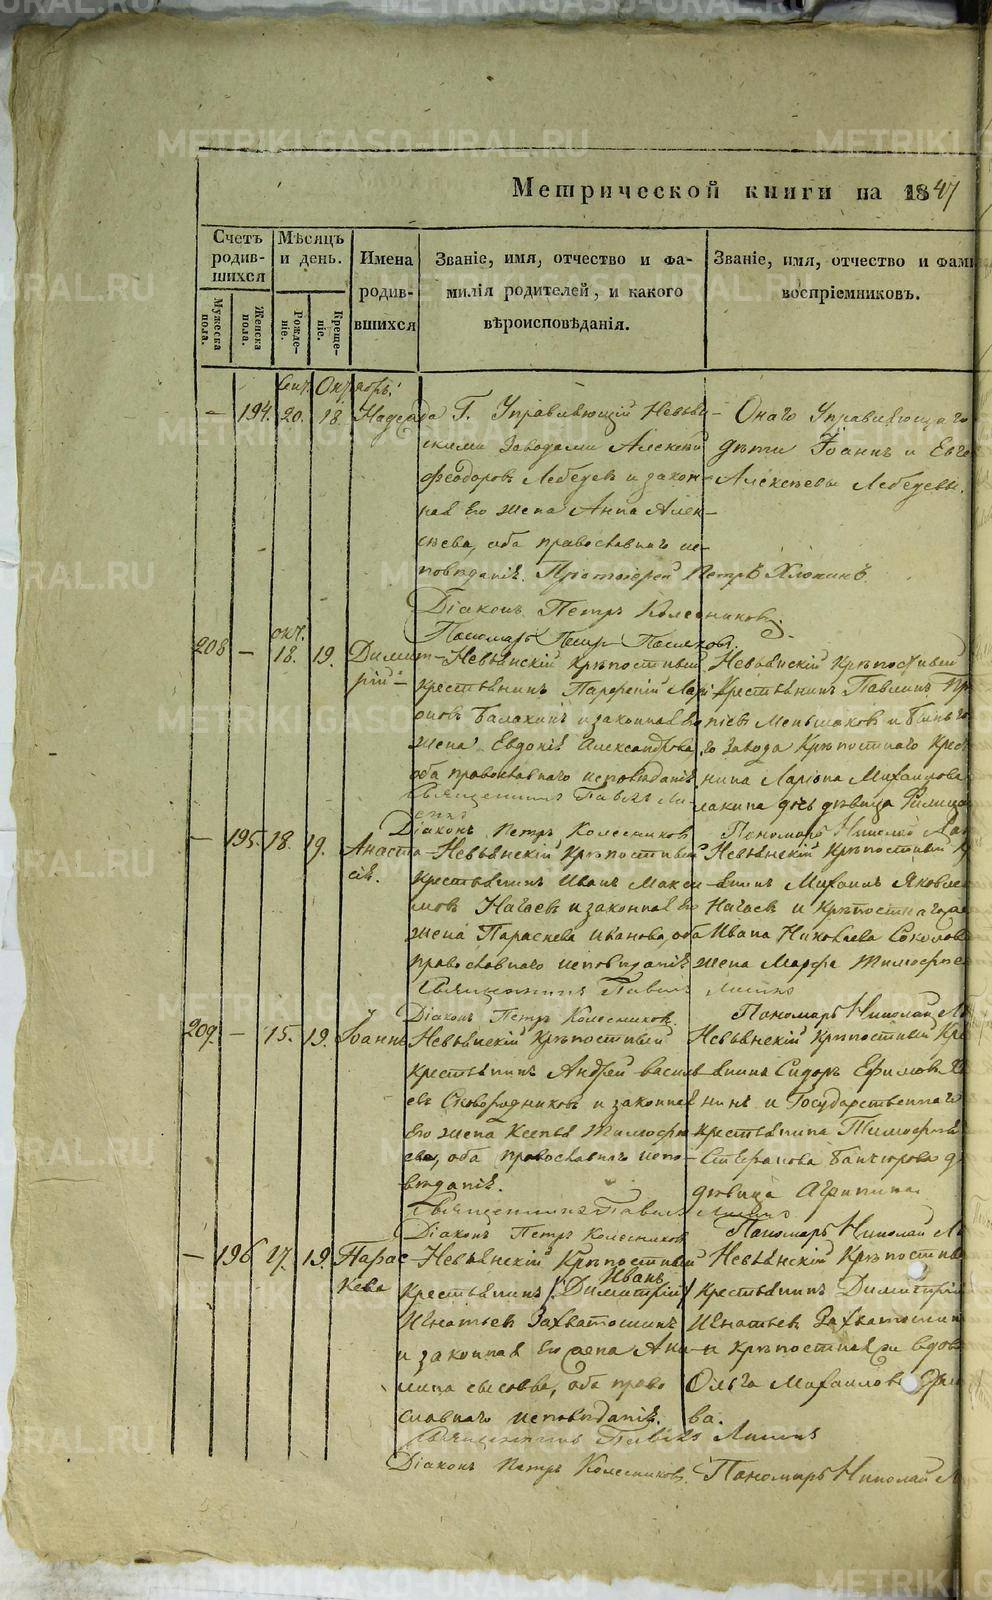 Метрической книги на 1847
Счетъ родив-шихся
Мѣсяцъ и день.
Имена родив-вшихся
Званіе, имя, отчество и фа-
милія родителей, и какого
вѣроисповѣданія.
Званіе, имя, отчество и фами
воспріемниковъ.
Мужеска пола.
Женска пола.
Рожде-ніе.
Креще-ніе.
Сент. Октябрь.
— 194. 20. 18. Надежда
Г. Управляющій Невья-
скими Заводами Алексѣй
Феодоровъ Лебедевъ и закон-
ная его жена Анна Алек-
сѣева, оба православнаго ис-
повѣданія. Протоіерей Петръ Хлопинъ
Діаконъ Петръ Колесниковъ.
Пономарь Петръ
Онаго Управляющаго
дѣти Іоаннъ и Евге
Алексѣевы Лебедевы.
208 — окт. 18. 19. Димит-
рій
Невьянскій крѣпостный
крестьянинъ Парфеній Лари-
оновъ Балакинъ и законная его
жена Евдокія Александрова
оба православнаго исповѣданія
Священникъ Павелъ
Діаконъ Петръ Колесниковъ
Невьянскій Крѣпостный
Крестьянинъ Павлинъ
Меньшаковъ и
го завода Крѣпостнаго Крест
нина Ларіона Михайлова
лакина дочь дѣвица
Пономарь Николай
— 195. 18. 19. Анаста
сія.
Невьянскій Крѣпостный
крестьянинъ Иванъ Макси
мовъ Нагаевъ и законная его
жена Параскева Иванова, оба
православнаго исповѣданія
Священникъ Павелъ
Діаконъ Петръ Колесниковъ.
Невьянскій Крѣпостный
янинъ Михаилъ Яковле
Нагаевъ и крѣпостнаго
Ивана Николаева Соколов
жена Марфа Тимофее
Пономарь Николай
209. — 15. 19. Іоаннъ
Невьянскій крѣпостный
крестьянинъ Андрей Василь
евъ Сковородниковъ и законная
его жена Ксенья Тимофее
ва, оба православнаго испо-
вѣданія.
Священникъ Павелъ
Діаконъ Петръ Колесниковъ
Невьянскій Крѣпостный Кре
янинъ Сидоръ Ефимовъ
нинъ и Государственнаго
крестьянина Тимофея
Стефанова
дѣвица Агрипина
Пономарь Николай
— 196 17. 19. Парас
кева
Невьянскій Крѣпостный
Иванъ
крестьянинъ /Димитрій/
Игнатьевъ Захватошинъ
и законная его жена Аки-
лина Сысоева, оба право
славнаго исповѣданія.
Священникъ Павелъ
Діаконъ Петръ Колесниковъ.
Невьянскій Крѣпостны
крестьянинъ Димитрій
Игнатьевъ Захватошин
и крѣпостная вдов
Ольга Михаилова
ва.
Пономарь Николай
METRIKI.GASO-URAL.RU